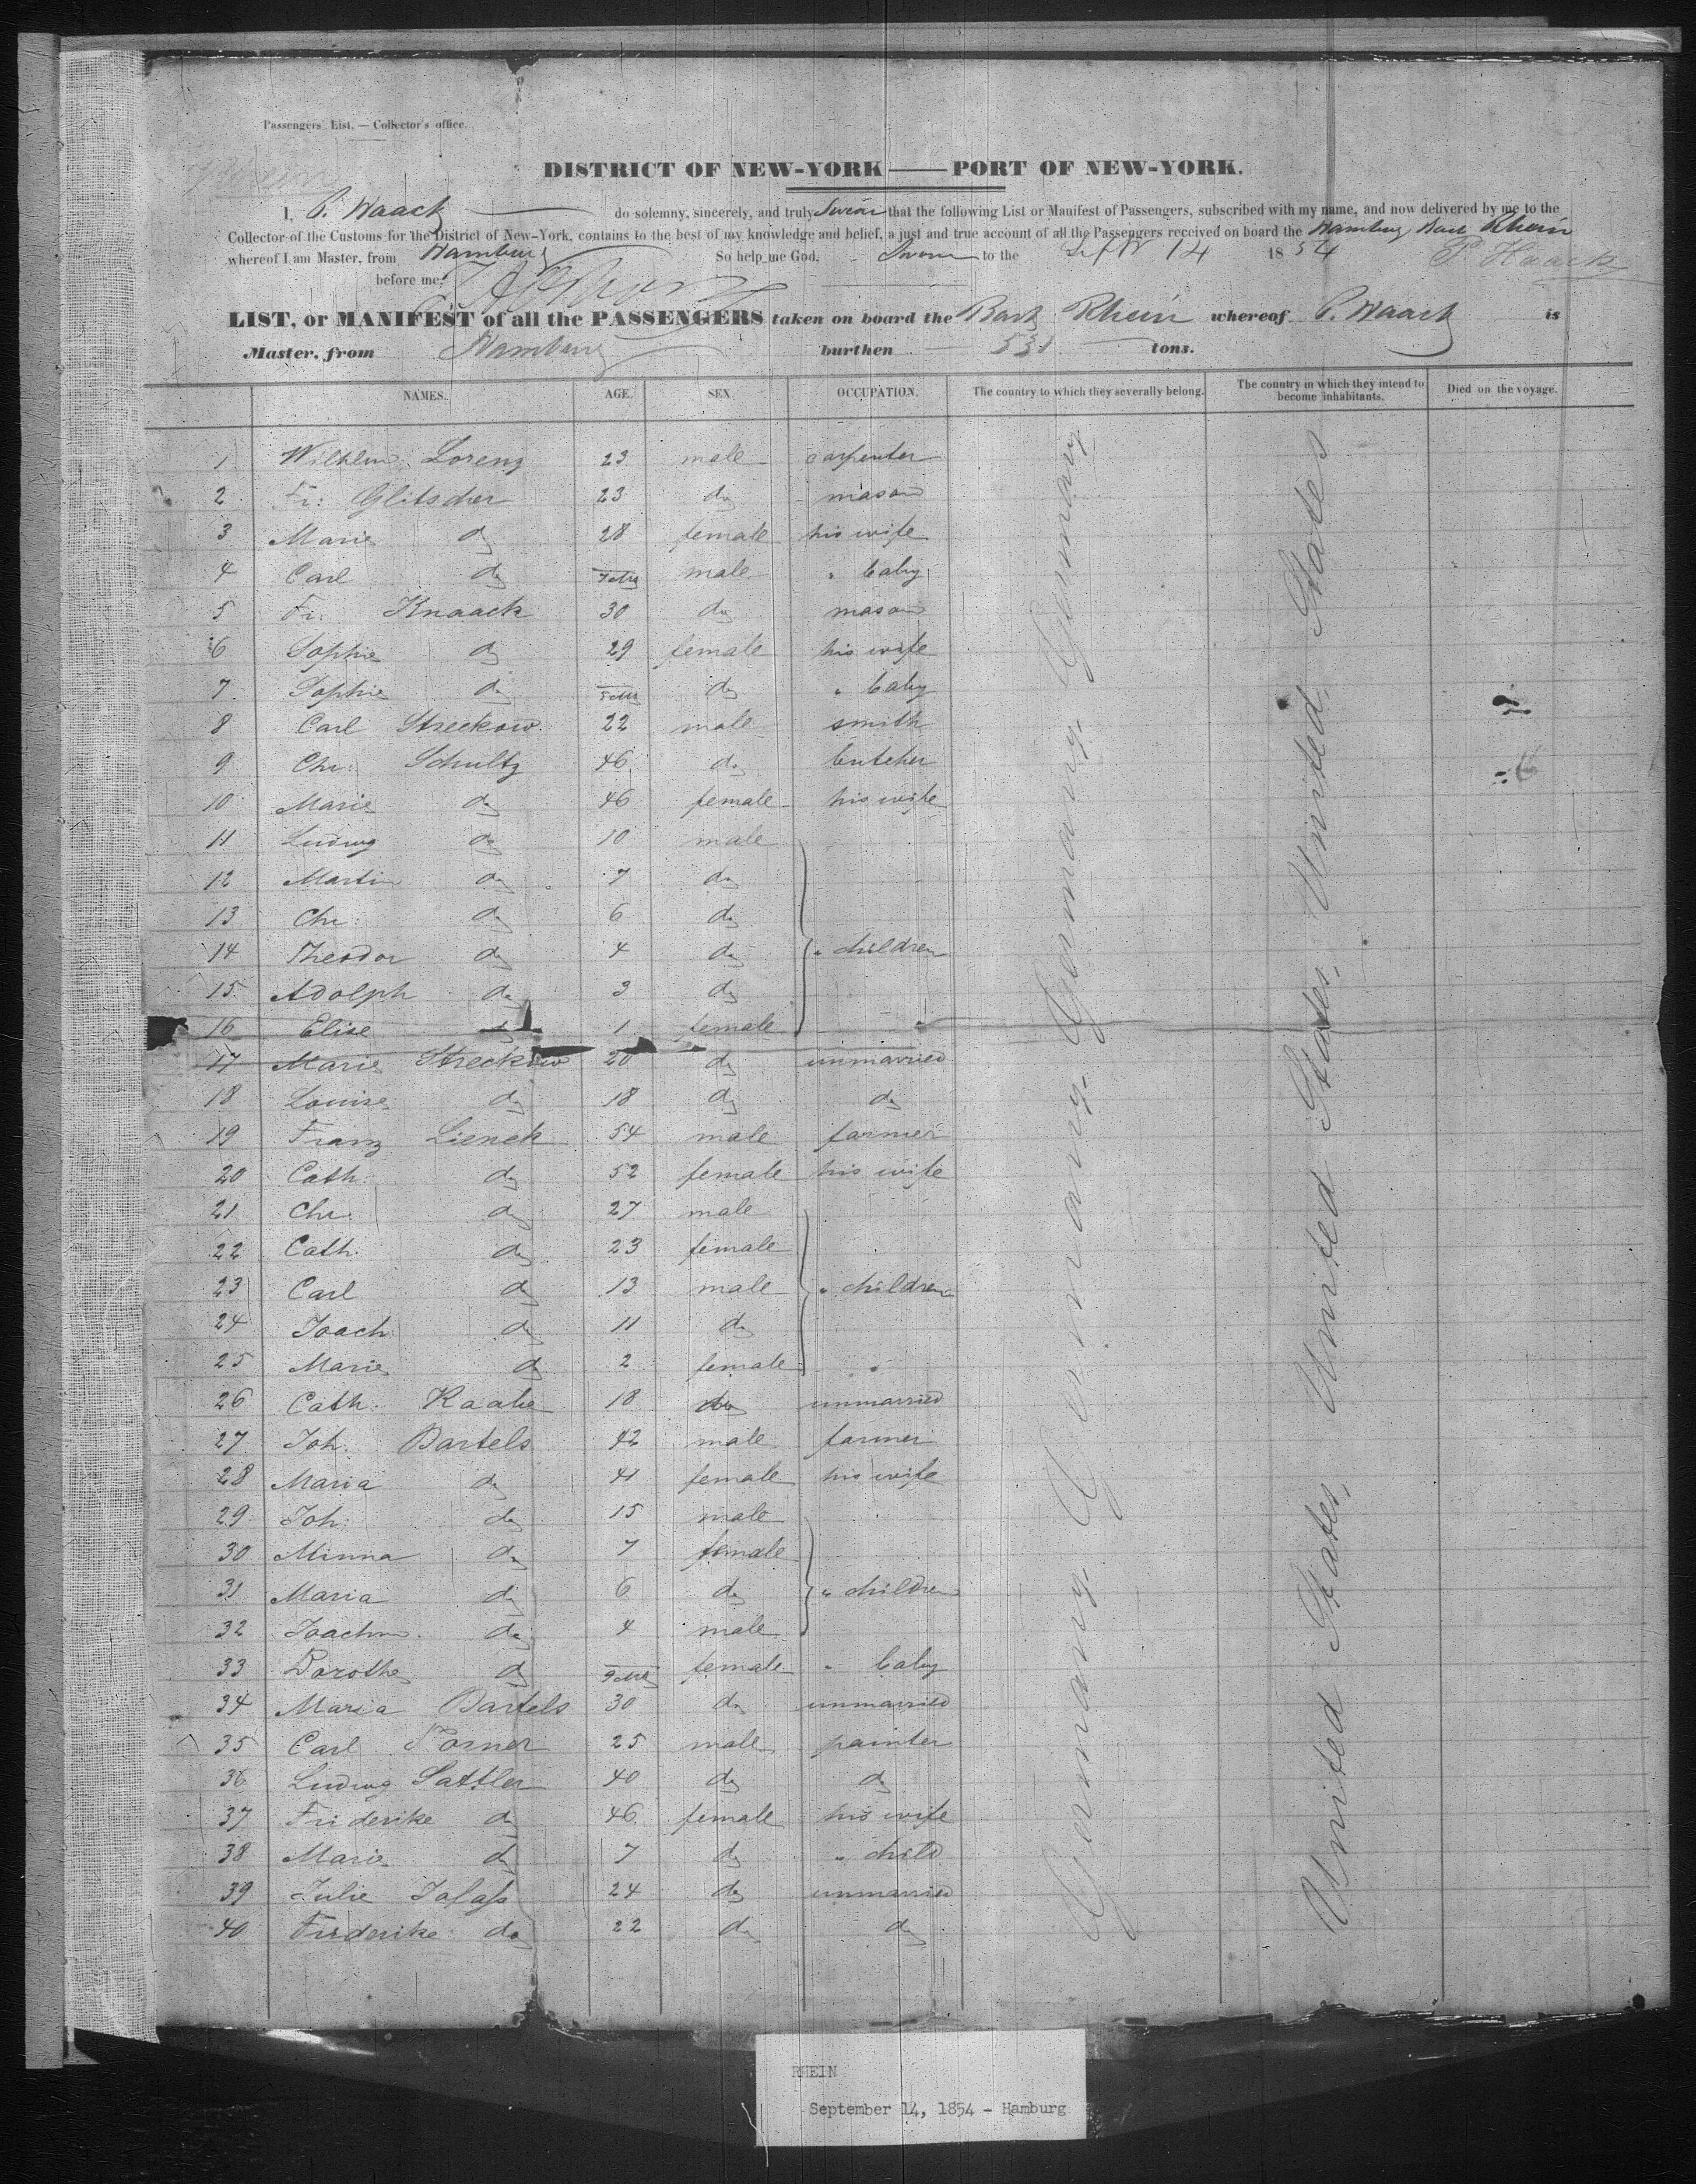 Passengers' List, — Collector's office.
DISTRICT OF NEW-YORK — PORT OF NEW-YORK.
I, P. Haack do solemny, sincerely, and truly Swear that the following List or Manifest of Passengers, subscribed with my name, and now delivered by me to the
Collector of the Customs for the District of New-York, contains to the best of my knowledge and belief, a just and true account of all the Passengers received on board the Hamburg Bark Rhein
whereof I am Master, from Hamburg So help me God. Sworn to the Septbr 14 1854 P. Haack
before me,
LIST, or MANIFEST of all the PASSENGERS taken on board the Bark Rhein whereof P. Haack is
Master, from Hamburg burthen 531 tons.
NAMES. AGE. SEX. OCCUPATION. The country to which they severally belong. The country in which they intend to become inhabitants. Died on the voyage.
1 Wilhelm Lorenz 23 male carpenter
2 Fr: Glitscher 23 do mason
3 Marie do 28 female his wife
4 Carl do male " baby
5 Fr: Knaack 30 do mason
6 Sophie do 29 female his wife
7 Sophie do do " baby
8 Carl Streckow 22 male smith
9 Chr: Schultz 46 do butcher
10 Marie do 46 female his wife
11 Ludwig do 10 male
12 Martin do 7 do
13 Chr: do 6 do
14 Theodor do 4 do " children
15 Adolph do 3 do
16 Elise do 1 female
17 Marie Streckow 20 do unmarried
18 Louise do 18 do do
19 Franz Lienck 54 male farmer
20 Cath: do 52 female his wife
21 Chr: do 27 male
22 Cath: do 23 female
23 Carl do 13 male " children
24 Joach: do 11 do
25 Marie do 2 female
26 Cath: Raabe 18 do unmarried
27 Joh. Bartels 42 male farmer
28 Maria do 41 female his wife
29 Joh: do 15 male
30 Minna do 7 female
31 Maria do 6 do " children
32 Joachim do 4 male
33 Dorothe do female " baby
34 Maria Bartels 30 do unmarried
35 Carl 25 male painter
36 Ludwig Sattler 40 do do
37 Friderike do 46 female his wife
38 Marie do 7 do " child
39 Julie 24 do unmarried
40 Friderike do 22 do do
Germany. Germany. Germany. Germany. Germany
United States, United States, United States
RHEIN
September 14, 1854 - Hamburg